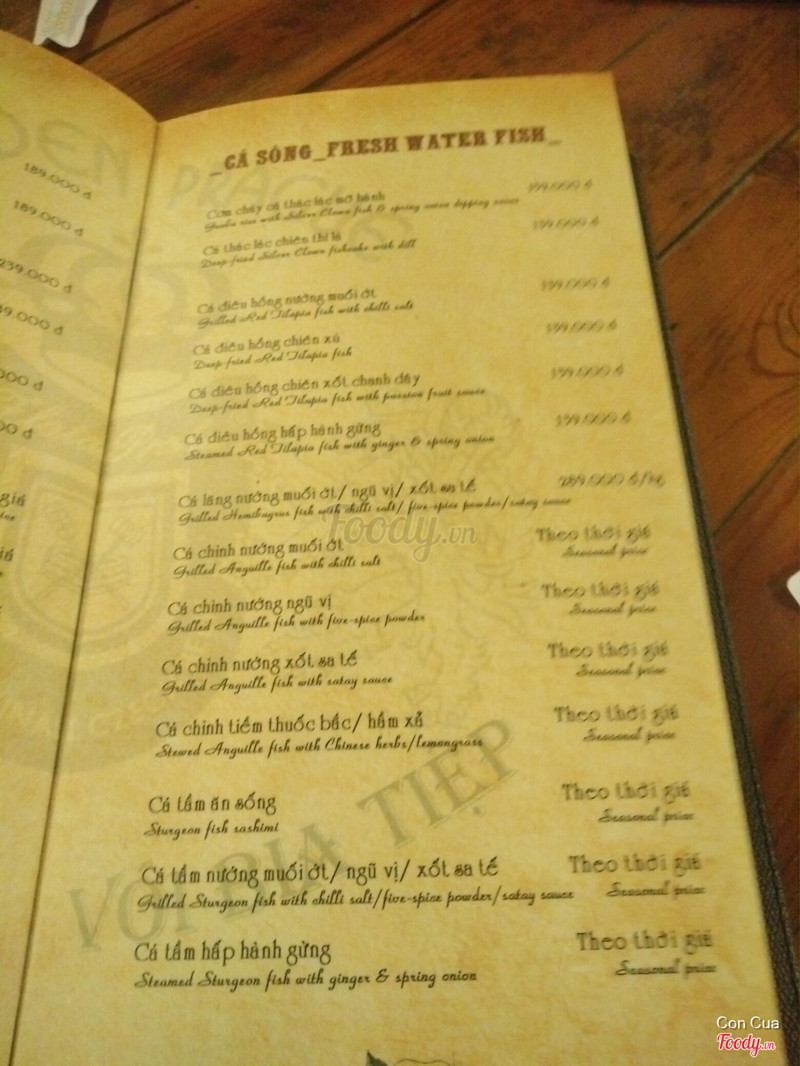 189.000 đ
189.000 đ
239.000 đ
000 đ
giá
_CÁ SÔNG_FRESH WATER FISH_
Cơm cháy cá thác lác mỡ hành
rice with Silver Clown fish & spring onion dipping sauce
Cá thác lác chiên thì là
Deep-fried Silver Clown fishcake with dill
Cá diêu hồng nướng muối ớt
Grilled Red Tilapia fish with chilli salt
Cá diêu hồng chiên xù
Deep-fried Red Tilapia fish
Cá diêu hồng chiên xốt chanh dây
Deep-fried Red Tilapia fish with passion fruit sauce
Cá diêu hồng hấp hành gừng
Steamed Red Tilapia fish with ginger & spring onion
Cá lăng nướng muối ớt/ ngũ vị/ xốt sa tế
Grilled Hemibagrus fish with chilli salt/ five-spice powder/satay sauce
Cá chình nướng muối ớt Theo thời giá
Grilled Anguille fish with chilli salt Seasonal price
Cá chình nướng ngũ vị Theo thời giá
Grilled Anguille fish with five-spice powder Seasonal price
Cá chình nướng xốt sa tế Theo thời giá
Grilled Anguille fish with satay sauce Seasonal price
Cá chình tiềm thuốc bắc/ hầm xả Theo thời giá
Stewed Anguille fish with Chinese herbs/lemongrass Seasonal price
Cá tầm ăn sống Theo thời giá
Sturgeon fish sashimi Seasonal price
Cá tầm nướng muối ớt/ ngũ vị/ xốt sa tế Theo thời giá
Grilled Sturgeon fish with chilli salt/five-spice powder/satay sauce Seasonal price
Cá tầm hấp hành gừng Theo thời giá
Steamed Sturgeon fish with ginger & spring onion Seasonal price
VỚI BIA TIỆP
Foody.vn
Con Cua
Foody.vn